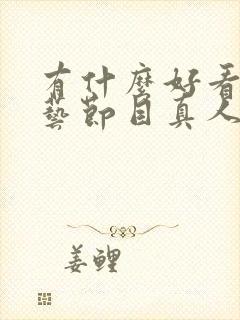 有什麼好看
藝節目真人
姜鲤